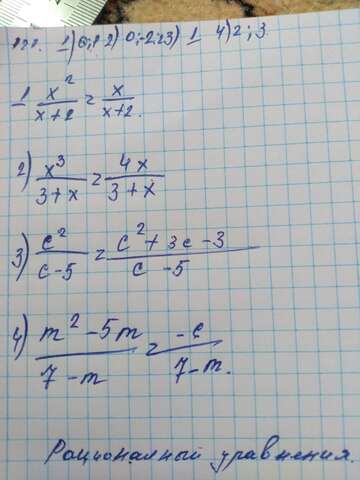 1) 0;1 2) 0;-2;2 3) 1 4) 2; 3.
1 x²/(x+2) = x/(x+2).
2) x³/(3+x) = 4x/(3+x)
3) c²/(c-5) = (c²+3c-3)/(c-5)
4) (m²-5m)/(7-m) = -c/(7-m).
Роциональный уравнения.